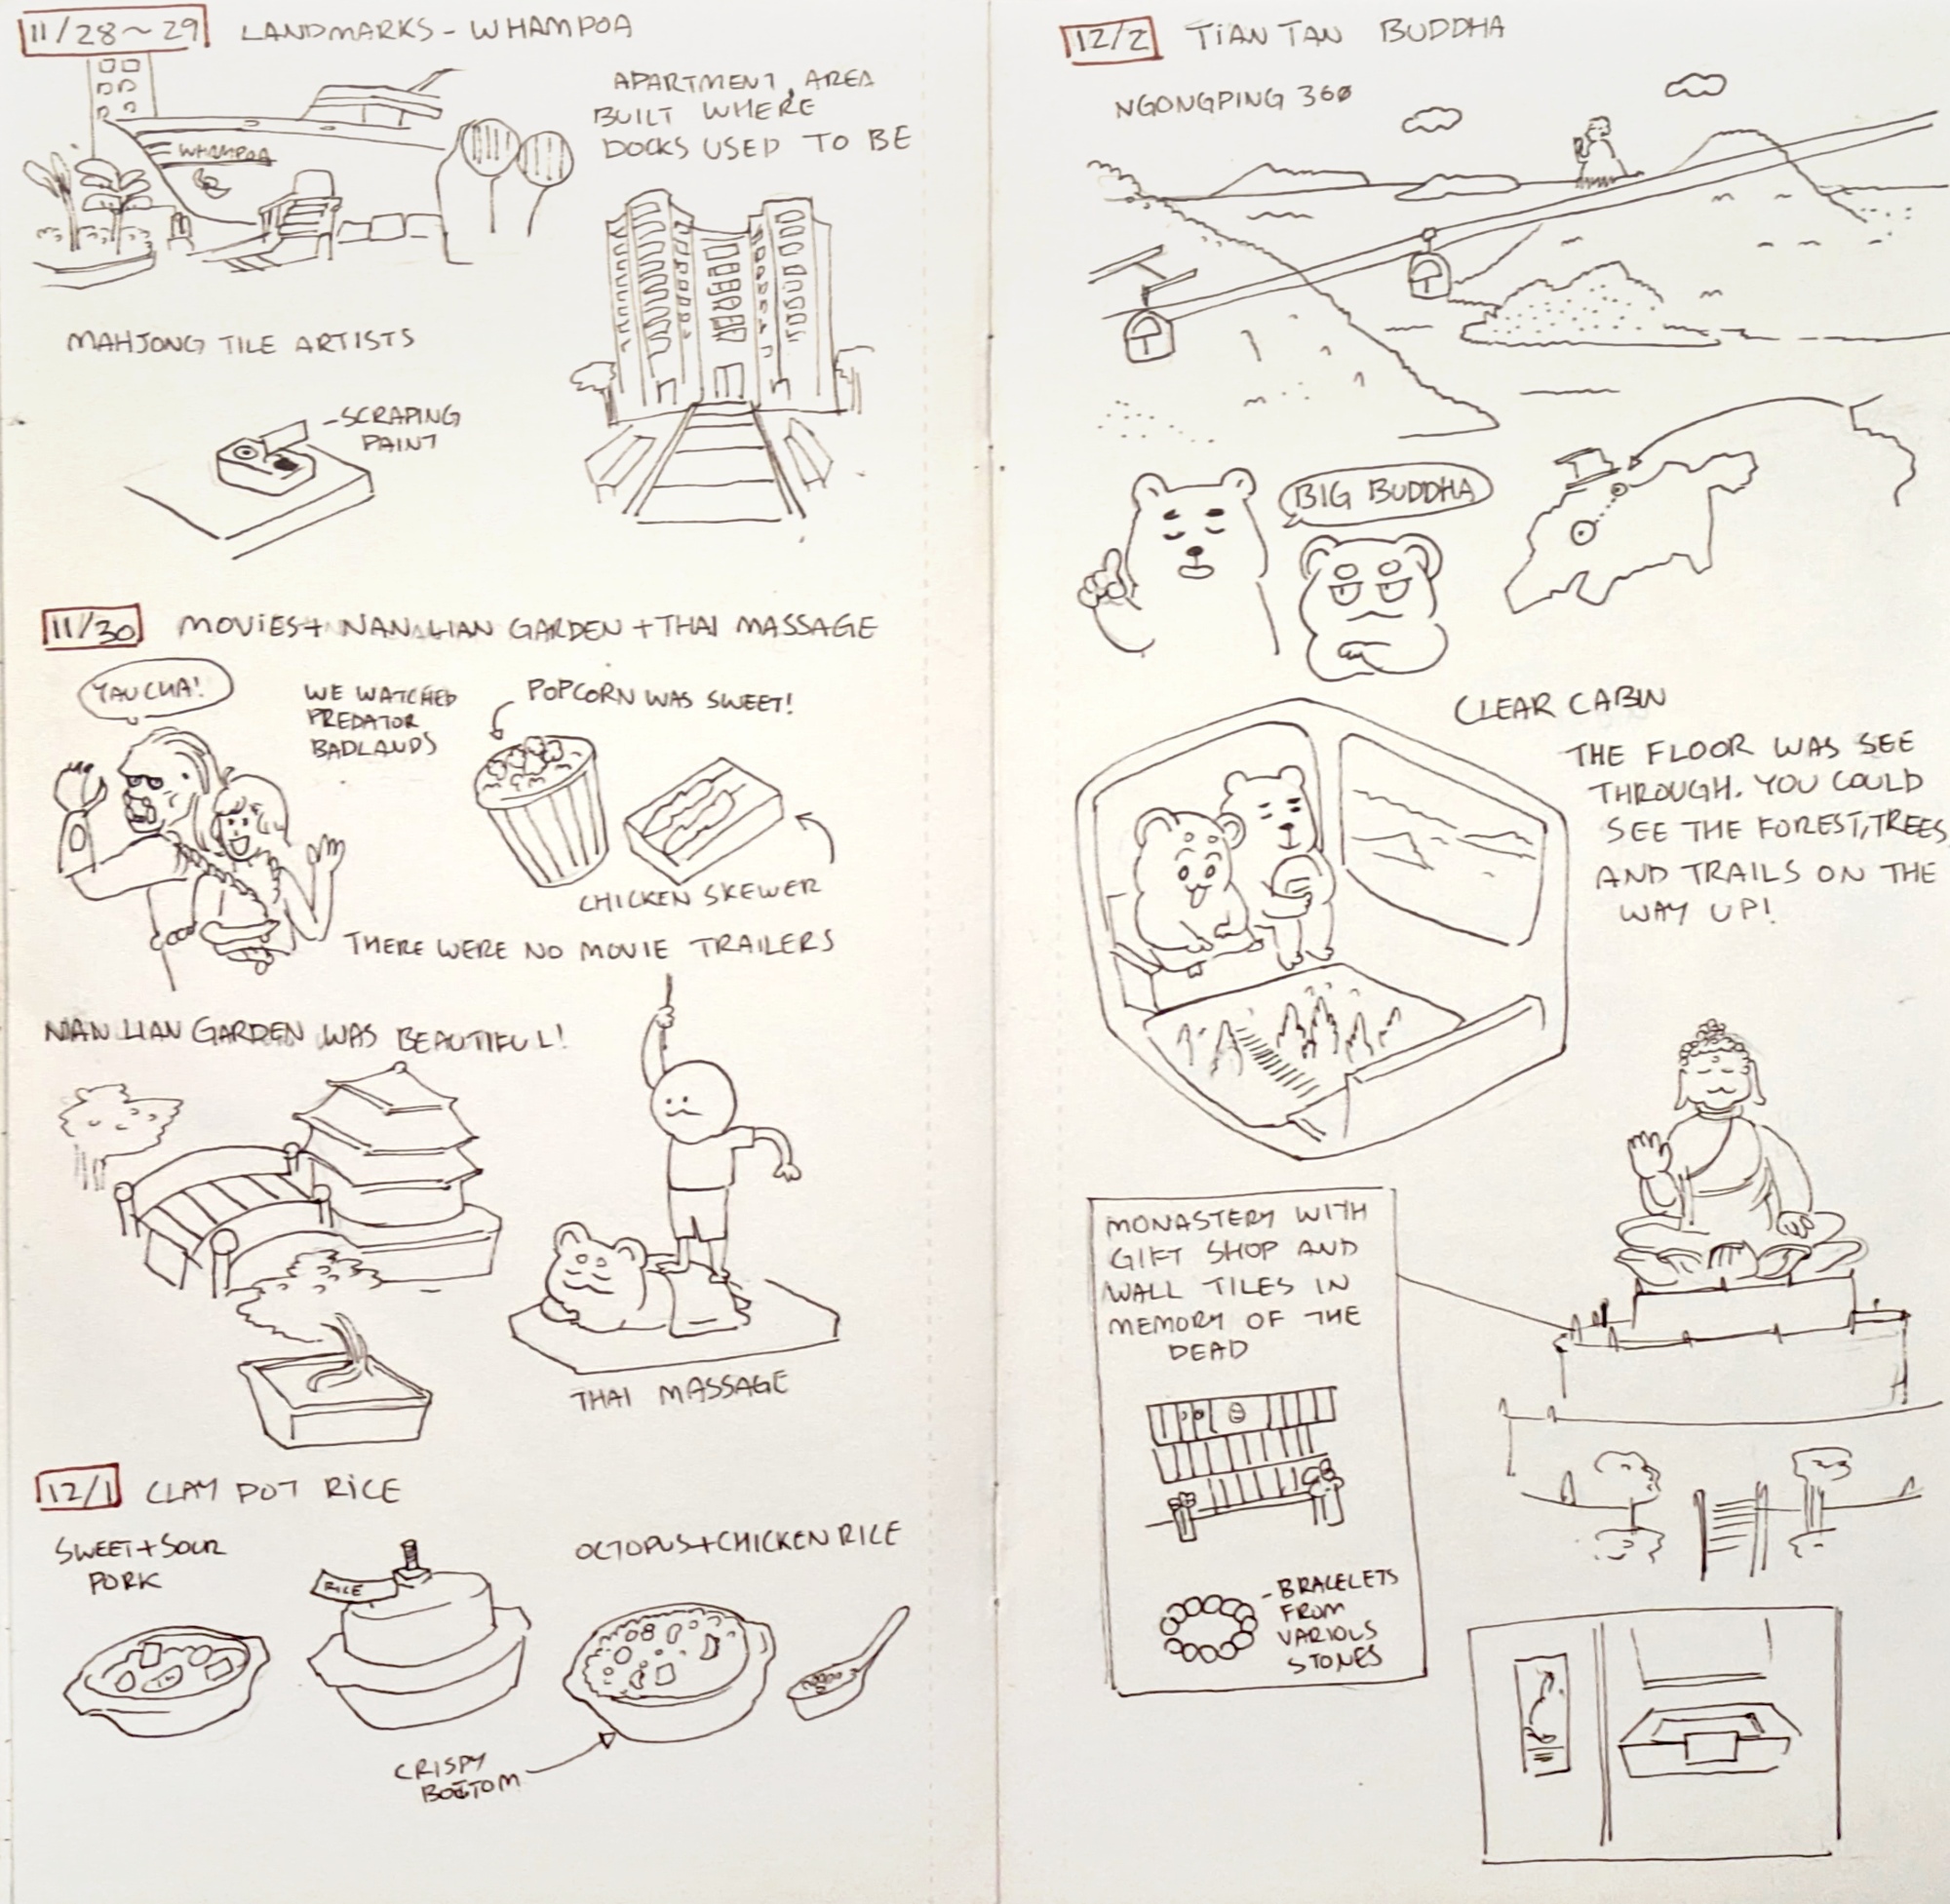 11/28~29 LANDMARKS - WHAMPOA
WHAMPOA
APARTMENT AREA
BUILT WHERE
DOCKS USED TO BE
MAHJONG TILE ARTISTS
-SCRAPING
PAINT
11/30 MOVIES + NAN LIAN GARDEN + THAI MASSAGE
YAUCHA!
WE WATCHED
PREDATOR
BADLANDS
POPCORN WAS SWEET!
CHICKEN SKEWER
THERE WERE NO MOVIE TRAILERS
NAN LIAN GARDEN WAS BEAUTIFUL!
THAI MASSAGE
12/1 CLAY POT RICE
SWEET + SOUR
PORK
RICE
OCTOPUS + CHICKEN RICE
CRISPY
BOTTOM
12/2 TIAN TAN BUDDHA
NGONGPING 360
BIG BUDDHA
CLEAR CABIN
THE FLOOR WAS SEE
THROUGH. YOU COULD
SEE THE FOREST, TREES,
AND TRAILS ON THE
WAY UP!
MONASTERY WITH
GIFT SHOP AND
WALL TILES IN
MEMORY OF THE
DEAD
-BRACELETS
FROM
VARIOUS
STONES